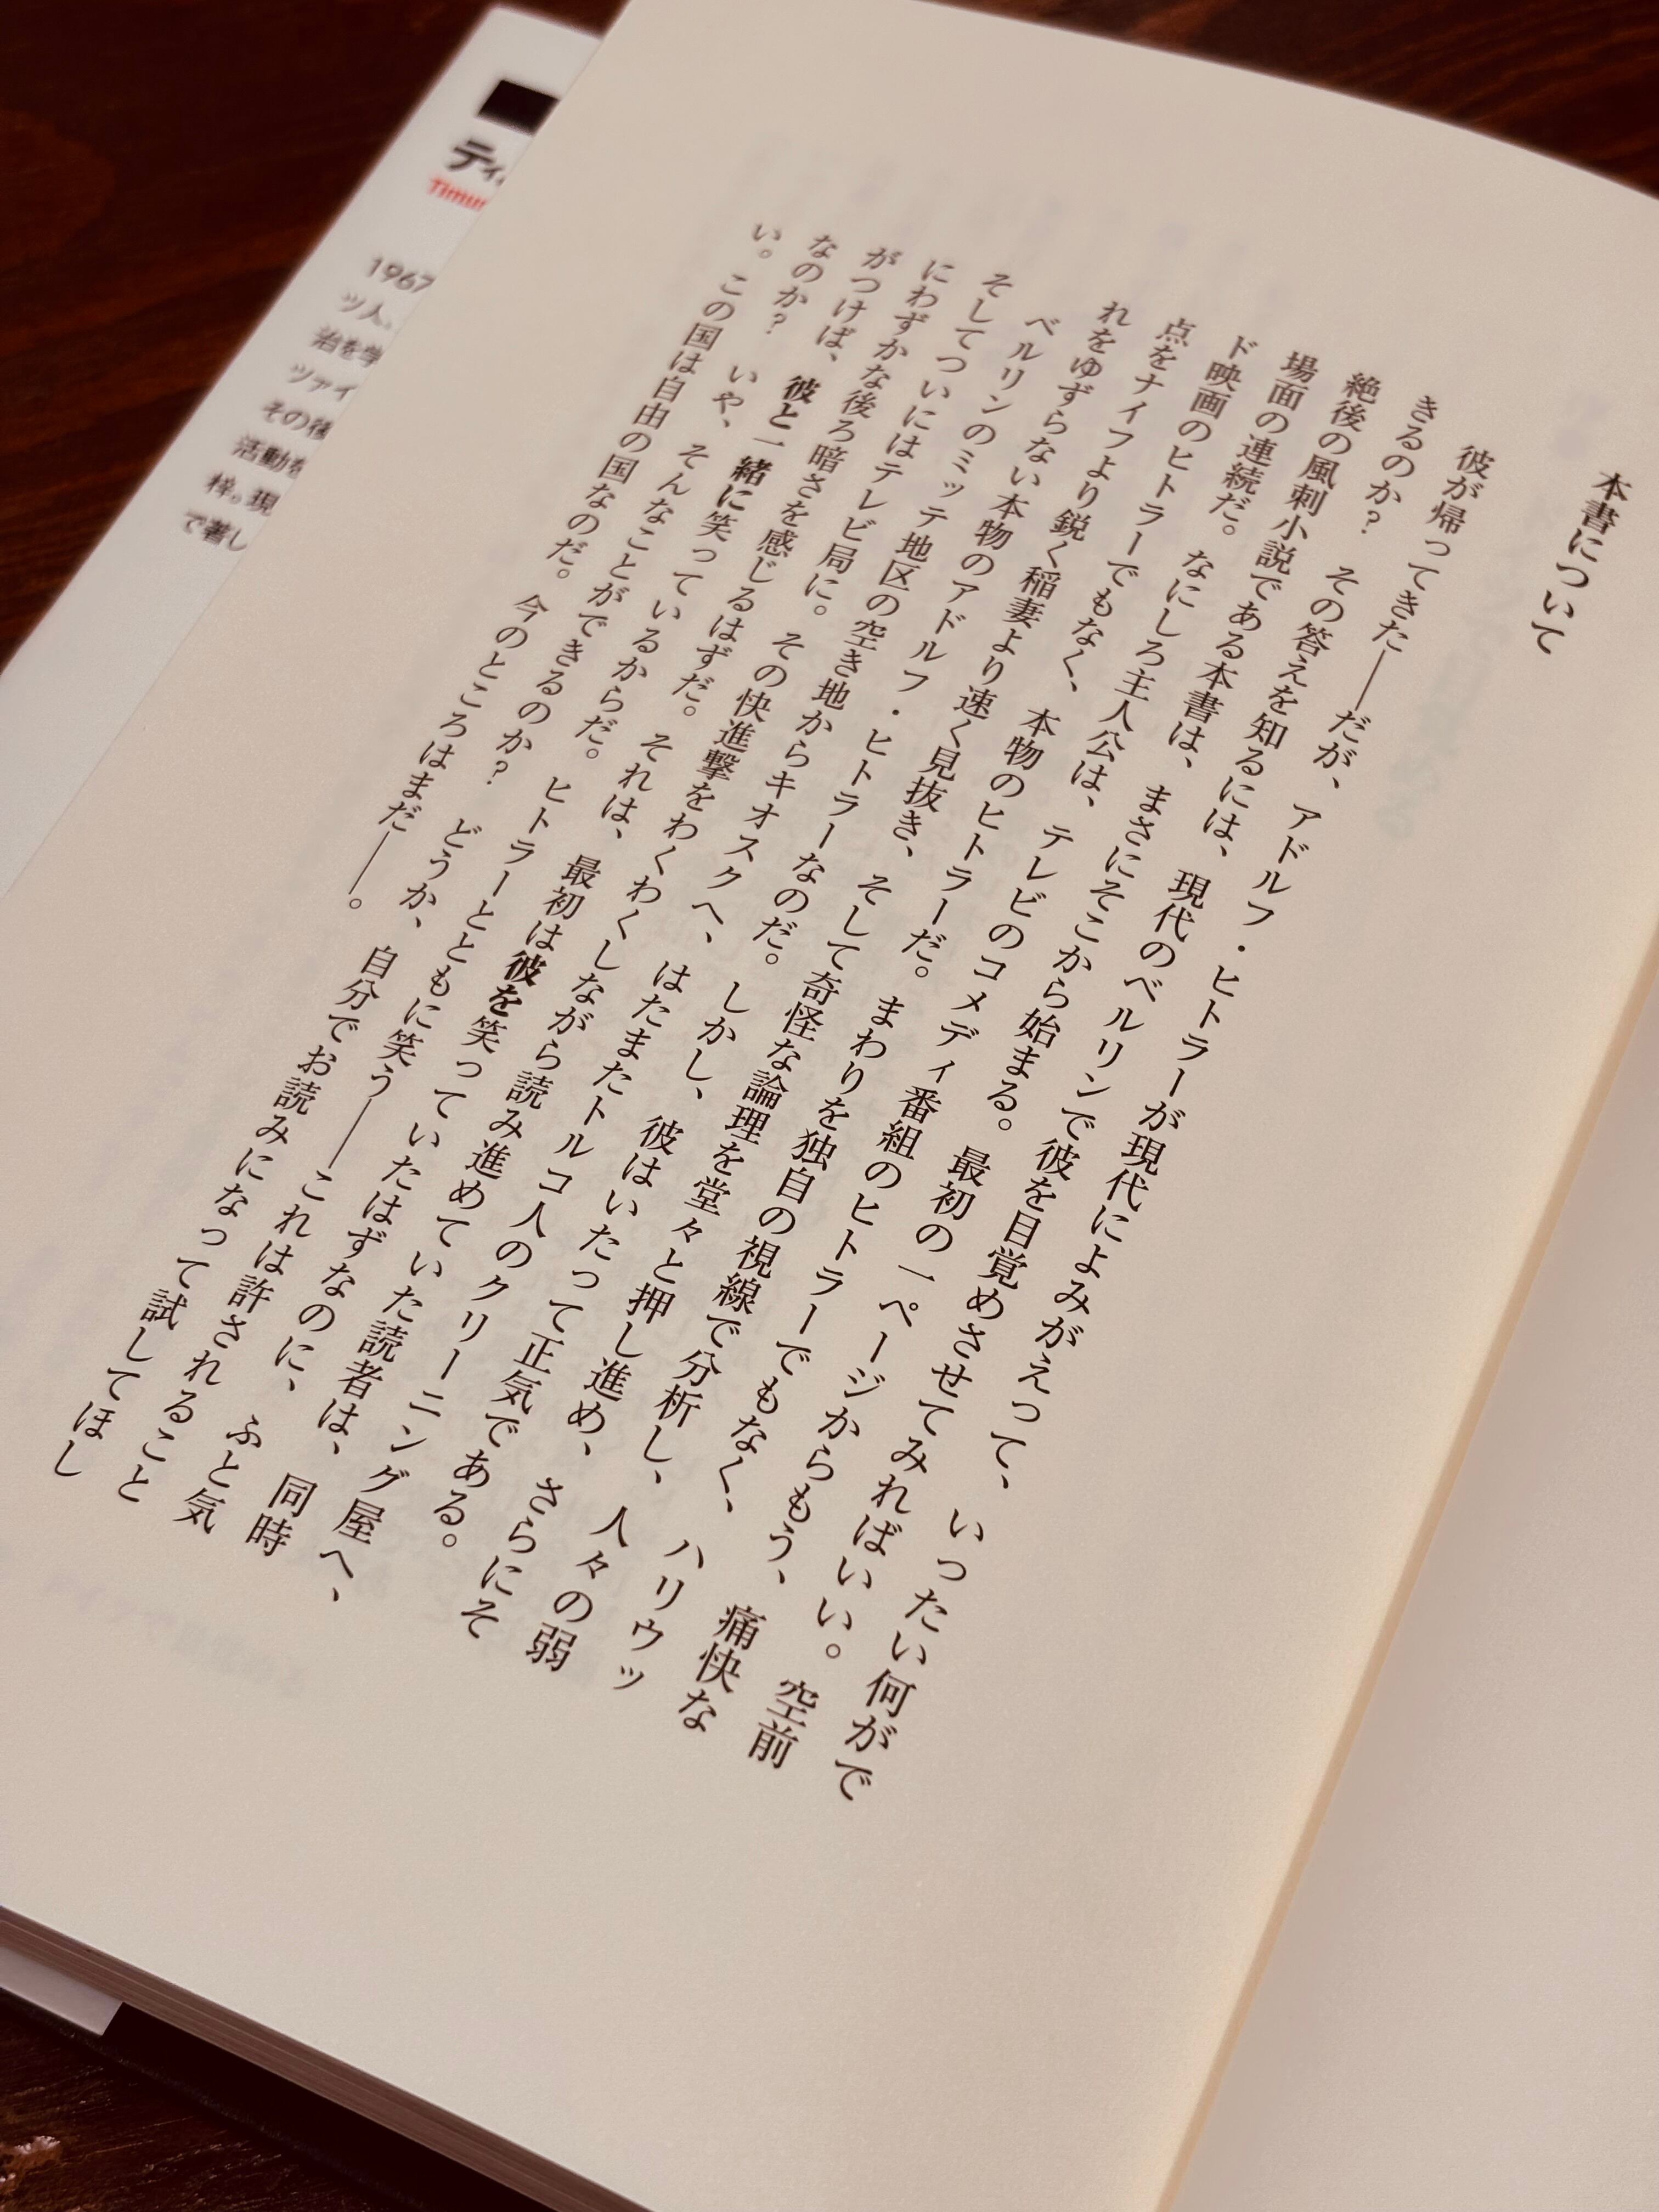 本書について
彼が帰ってきた――だが、アドルフ・ヒトラーが現代によみがえって、いったい何がで
きるのか? その答えを知るには、現代のベルリンで彼を目覚めさせてみればいい。空前
絶後の風刺小説である本書は、まさにそこから始まる。最初の一ページからもう、痛快な
場面の連続だ。なにしろ主人公は、テレビのコメディ番組のヒトラーでもなく、ハリウッ
ド映画のヒトラーでもなく、本物のヒトラーだ。まわりを独自の視線で分析し、人々の弱
点をナイフより鋭く稲妻より速く見抜き、そして奇怪な論理を堂々と押し進め、さらにそ
れをゆずらない本物のアドルフ・ヒトラーなのだ。しかし、彼はいたって正気である。
ベルリンのミッテ地区の空き地からキオスクへ、はたまたトルコ人のクリーニング屋へ、
そしてついにはテレビ局に。その快進撃をわくわくしながら読み進めていた読者は、同時
にわずかな後ろ暗さを感じるはずだ。それは、最初は彼を笑っていたはずなのに、ふと気
がつけば、彼と一緒に笑っているからだ。ヒトラーとともに笑う――これは許されること
なのか? いや、そんなことができるのか? どうか、自分でお読みになって試してほし
い。この国は自由の国なのだ。今のところはまだ――。
ティ
Timur
1967
ツ人、
治を学
ツァイ
その後
活動を
梓。現
で著し